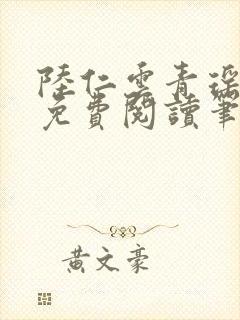 陸仁雲青瑤
免費閱讀筆
黃文豪